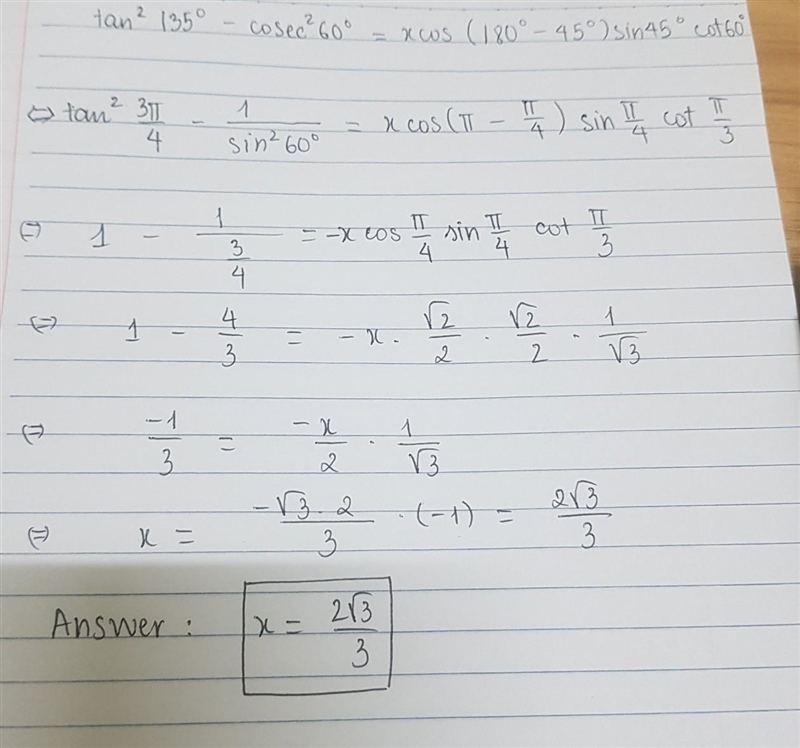 tan² 135° - cosec²60° = x cos (180° - 45°) sin45° cot60°
⇔ tan² 3π/4 - 1/sin²60° = x cos(π - π/4) sin π/4 cot π/3
(=) 1 - 1/(3/4) = -x cos π/4 sin π/4 cot π/3
(=) 1 - 4/3 = -x · √2/2 · √2/2 · 1/√3
(=) -1/3 = -x/2 · 1/√3
(=) x = -√3 · 2/3 · (-1) = 2√3/3
Answer : x = 2√3/3